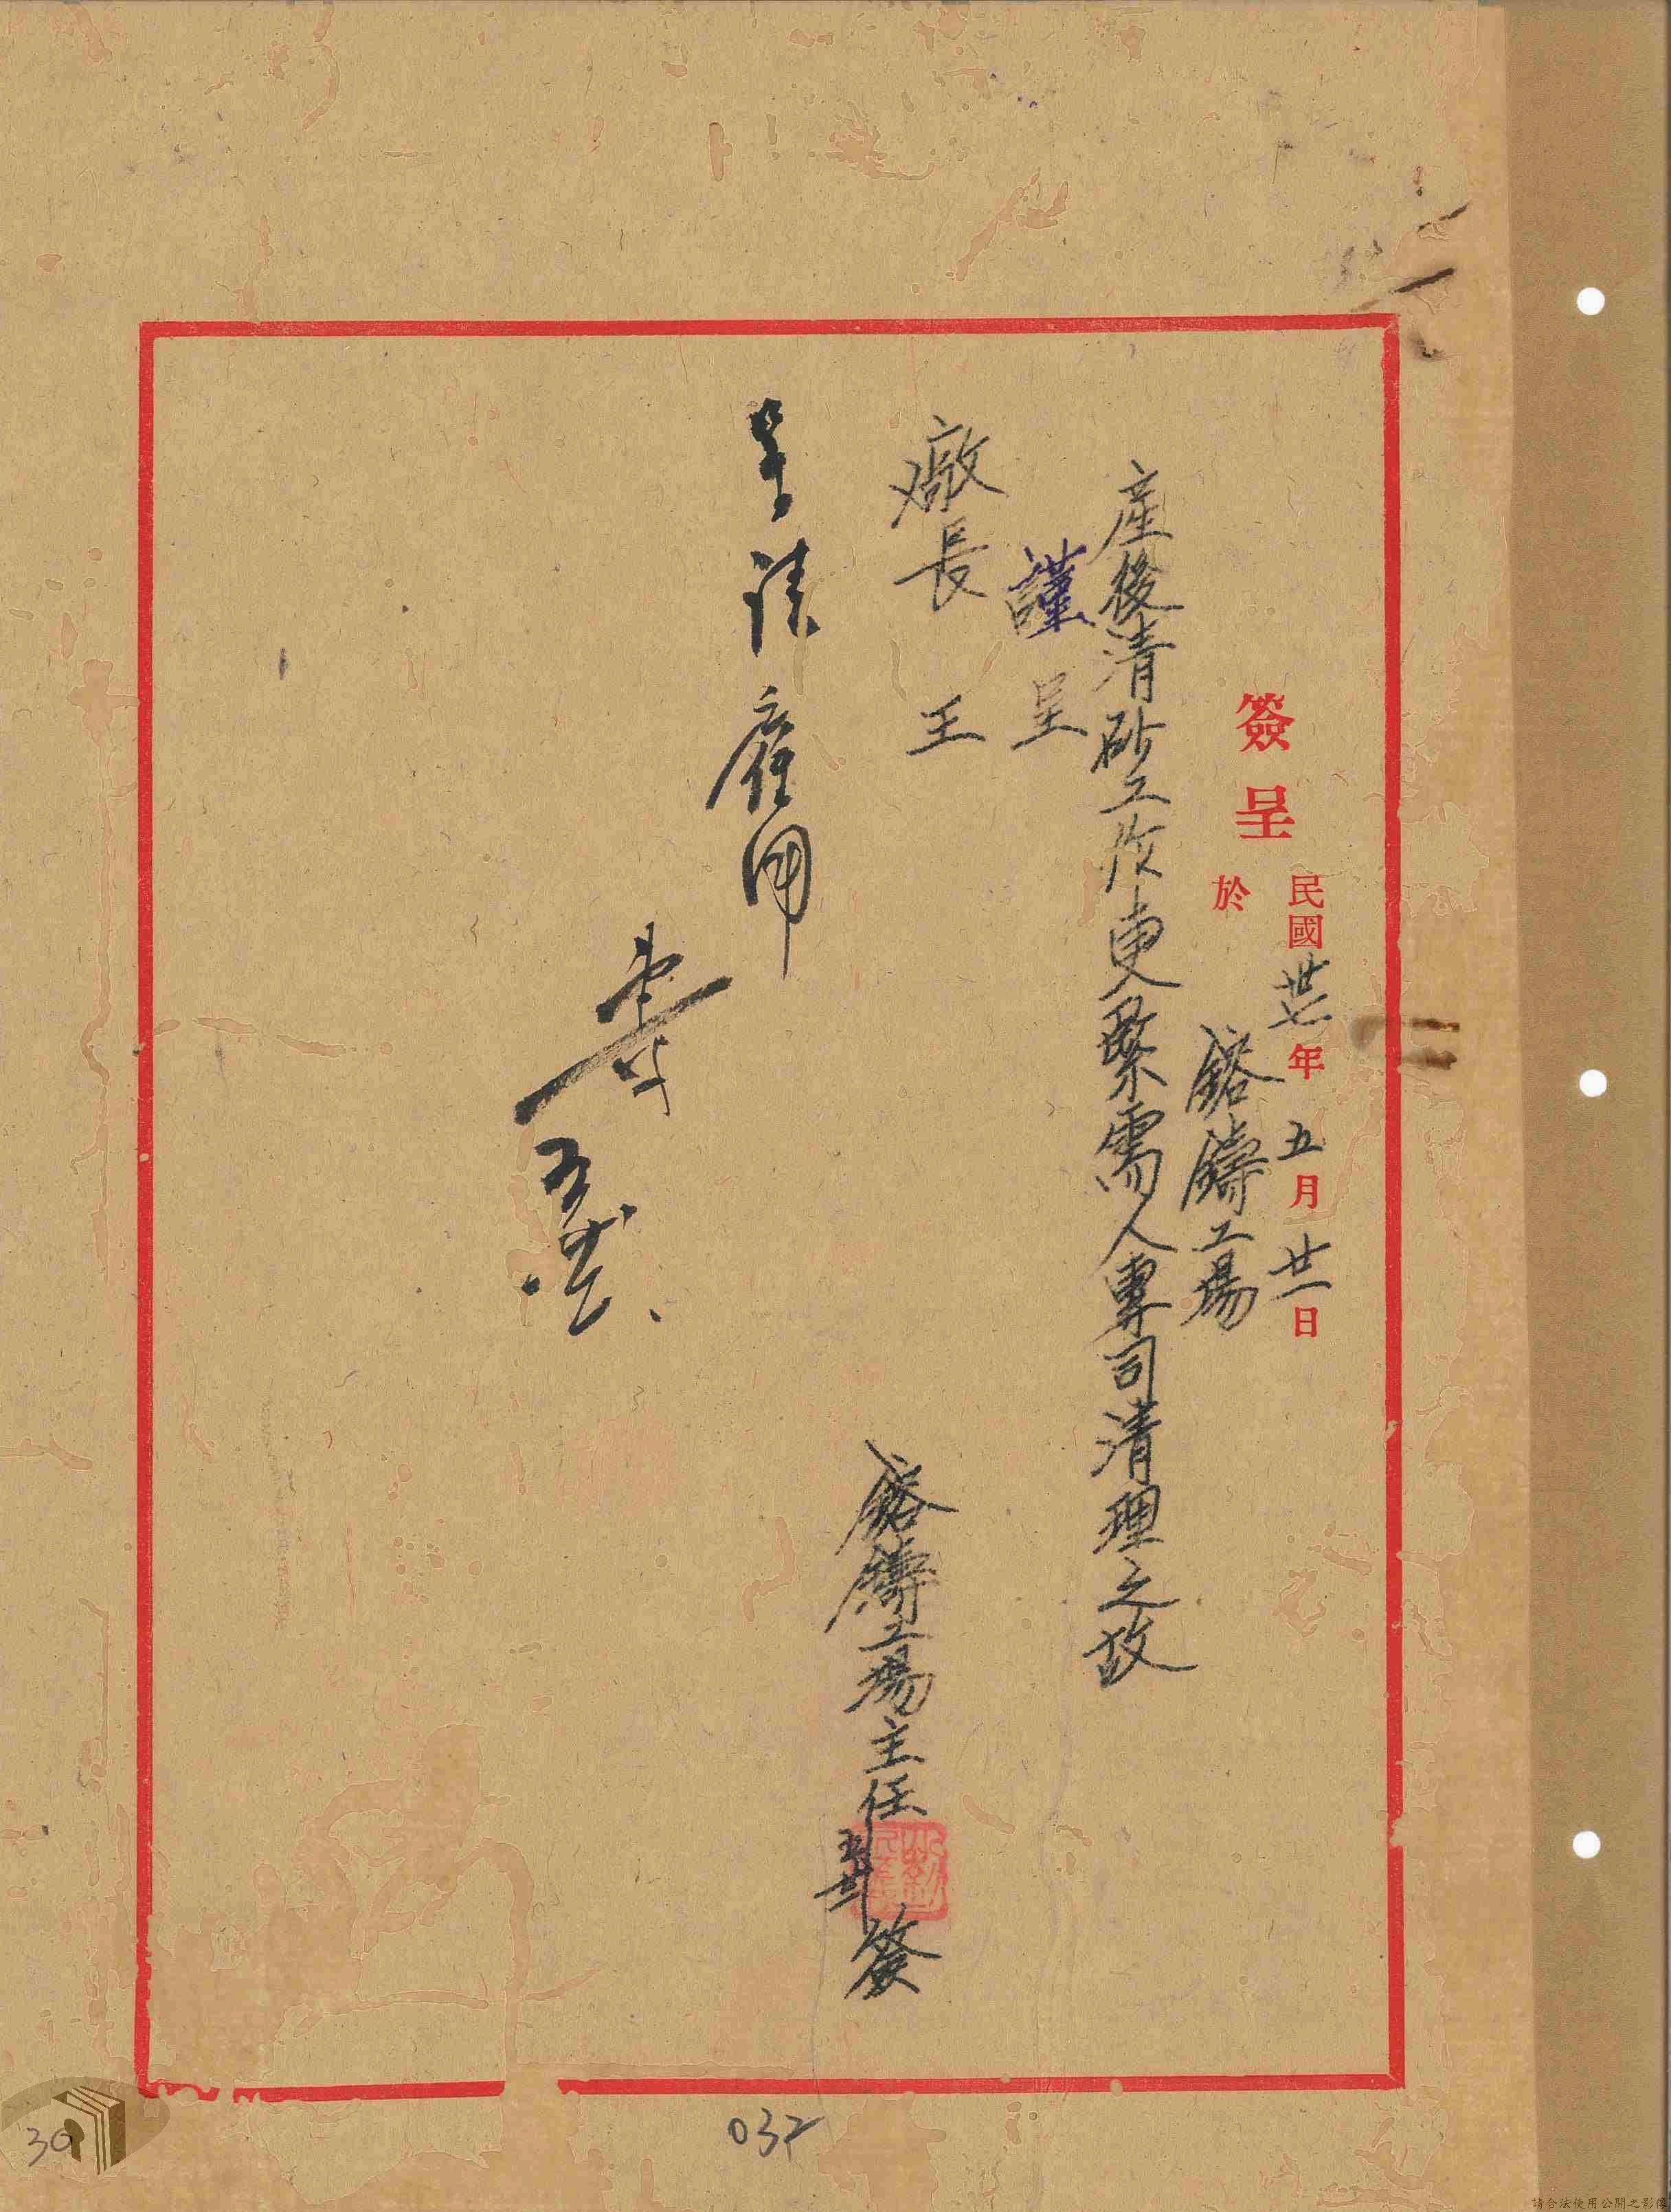 簽呈
民國卅七年五月廿一日
於
鎔鑄工場
產後清砂工作更緊需人專司清理之故
謹呈
廠長 王
鎔鑄工場主任
簽
呈請雇用
032
30
請合法使用公開之影像